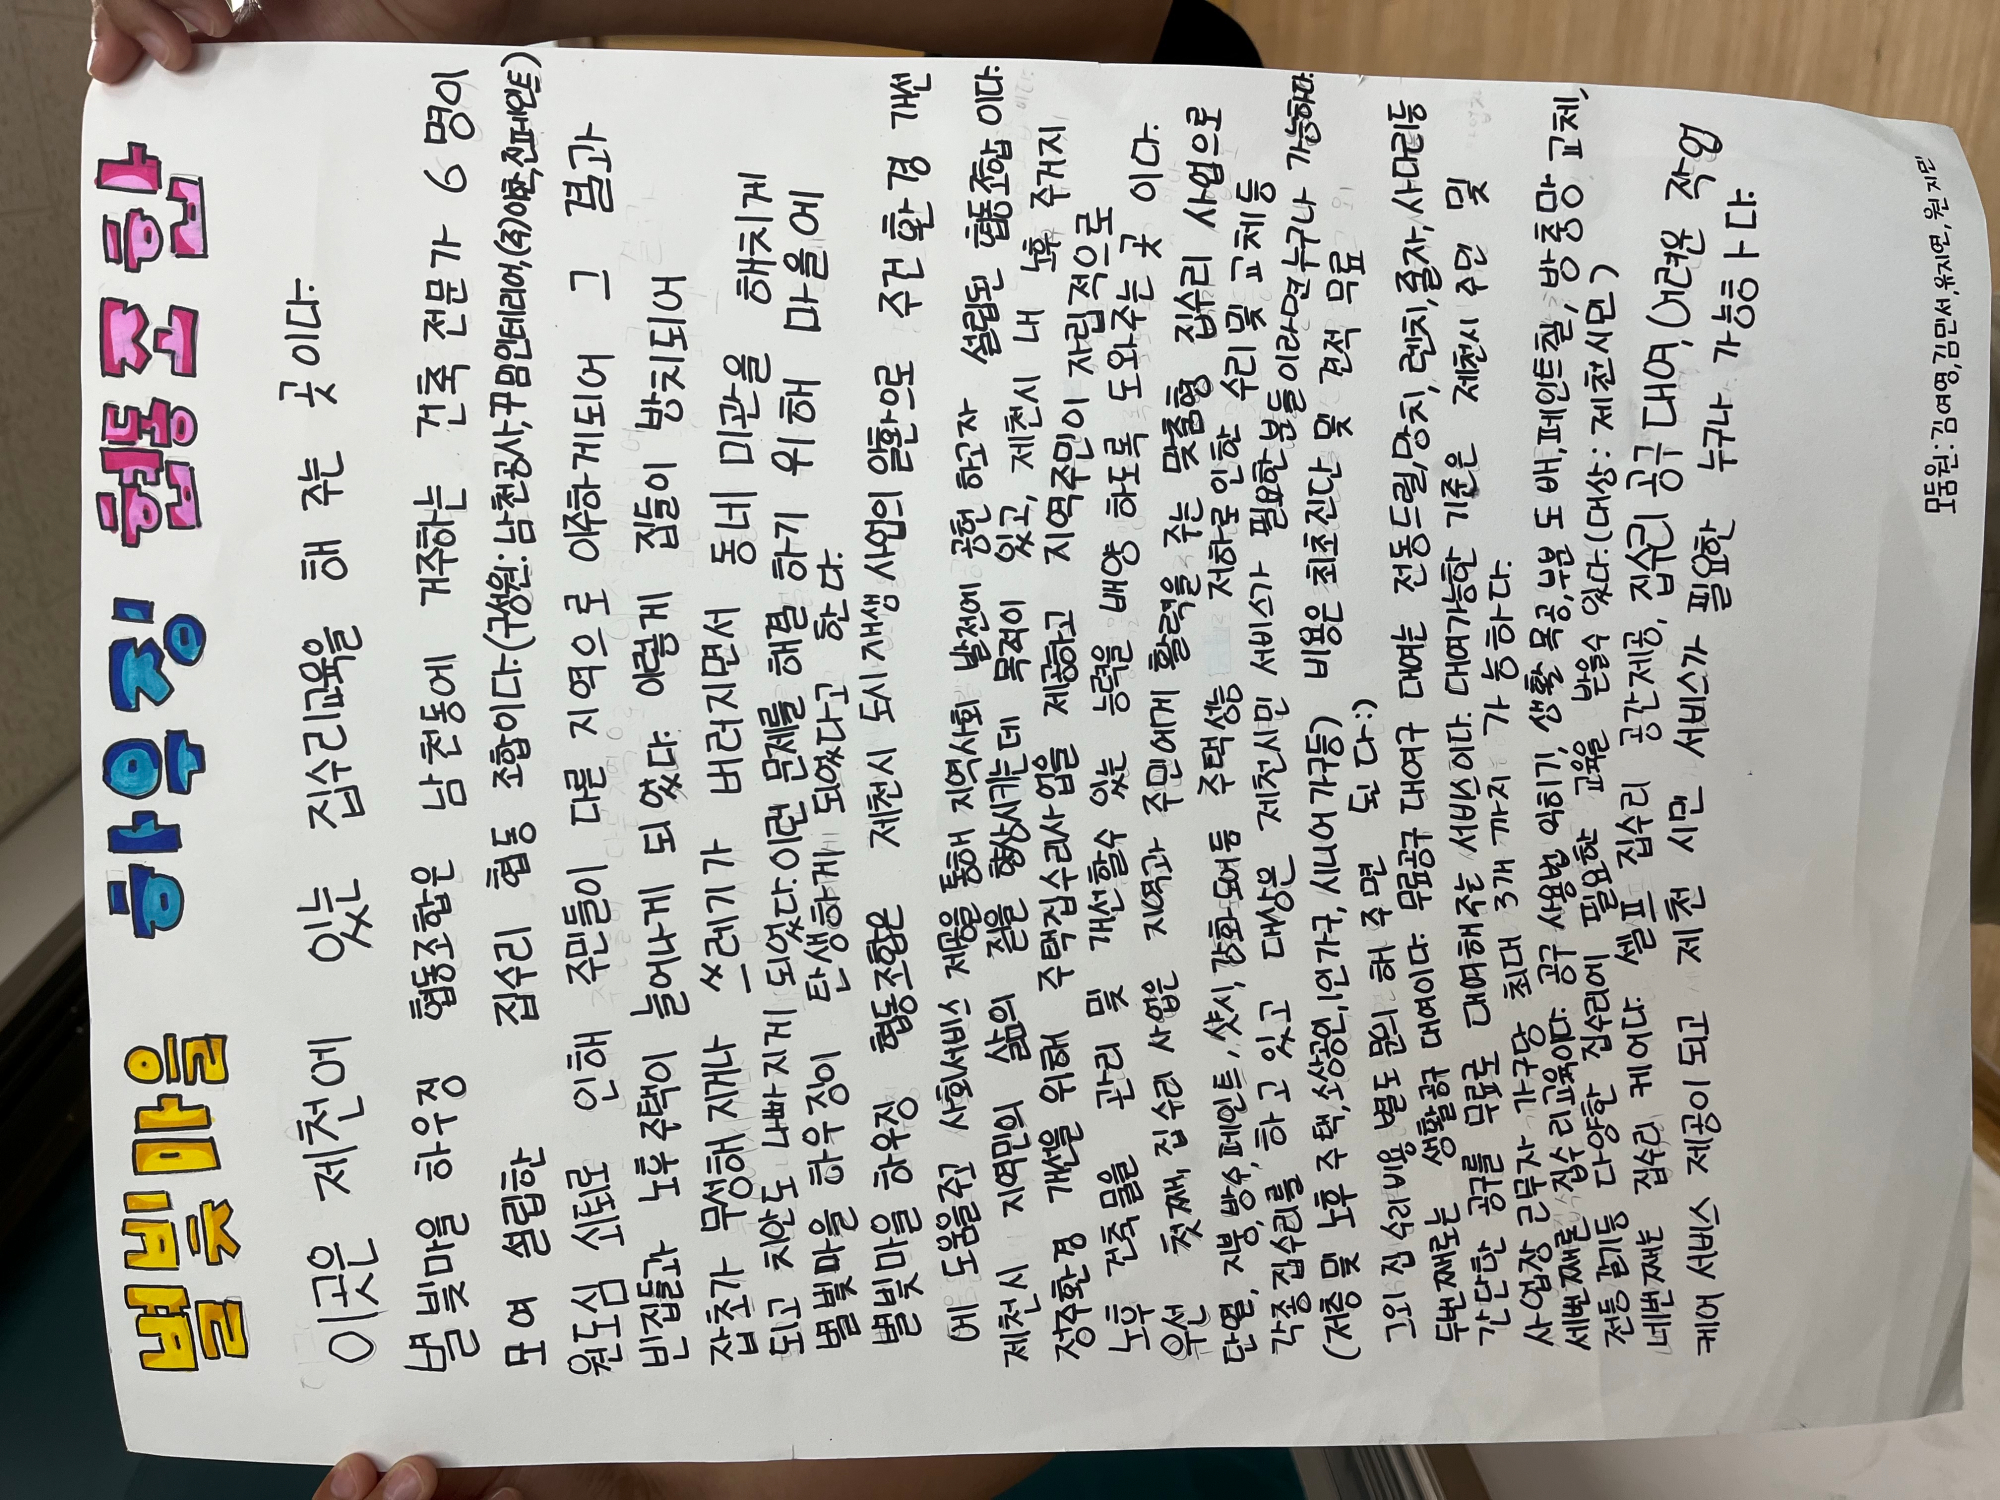 별빛마을 하우징 협동조합
이곳은 제천에 있는 집수리교육을 해 주는 곳이다.
별빛마을 하우징 협동조합은 남천동에 거주하는 건축 전문가 6명이
모여 설립한 집수리 협동 조합이다.(구성원:남천공사,꾸밈인테리어,(주)이한,진페인트)
원도심 쇠퇴로 인해 주민들이 다른 지역으로 이주하게되어 그 결과
빈집들과 노후주택이 늘어나게 되었다. 이렇게 집들이 방치되어
잡초가 무성해지거나 쓰레기가 버러지면서 동네 미관을 해치게
되고 치안도 나빠지게 되었다.이런 문제를 해결 하기 위해 마을에
별빛마을 하우징이 탄생하게 되었다고 한다.
별빛마을 하우징 협동조합은 제천시 도시재생 사업의 일환으로 주건환경 개선
에 도움을주고 사회서비스 제공을 통해 지역사회 발전에 공헌 하고자 설립된 협동조합 이다.
제천시 지역민의 삶의 질을 향상시키는데 목적이 있고, 제천시 내 노후 주거지
정주환경 개선을 위해 주택집수리사업을 제공하고 지역주민이 자립적으로
노후 건축물을 관리 및 개선할수 있는 능력을 배양 하도록 도와주는 곳 이다.
우선 첫째,집수리 사업은 지역과 주민에게 활력을 주는 맞춤형 집수리 사업으로
단열, 지붕,방수,페인트,샷시,강화도어등 주택성능 저하로 인한 수리 및 교체 등
각종집수리를 하고 있고 대상은 제천시민 서비스가 필요한분들이라면 누구나 가능하다.
(저층및 노후 주택,소상공인,1인가구,시니어가구등) 비용은 최초진단 및 견적 무료
그외 집수리비용 별도 문의 해 주면 된다:)
두번째로는 생활공구 대여이다. 무료공구 대여구 대여는 전동드릴,망치,렌치,줄자,사다리등
간단한 공구를 무료로 대여해주는 서비스이다. 대여가능한 기준은 제천시 주민 및
사업장 근무자 가구당 최대 3개 까지 가능하다.
세번째로는 집수리교육이다. 공구 사용법 익히기, 생활 목공,부분 도배,페인트칠,방충망 교체,
전등갈기등 다양한 집수리에 필요한 교육을 받을수 있다.(대상:제천시민)
네번째는 집수리 케어다. 셀프 집수리 공간제공, 집수리 공구대여,(어려운 작업
케어 서비스 제공이 되고 제천 시민 서비스가 필요한 누구나 가능하다.
모둠원:김여영,김민서,유지연,원지민